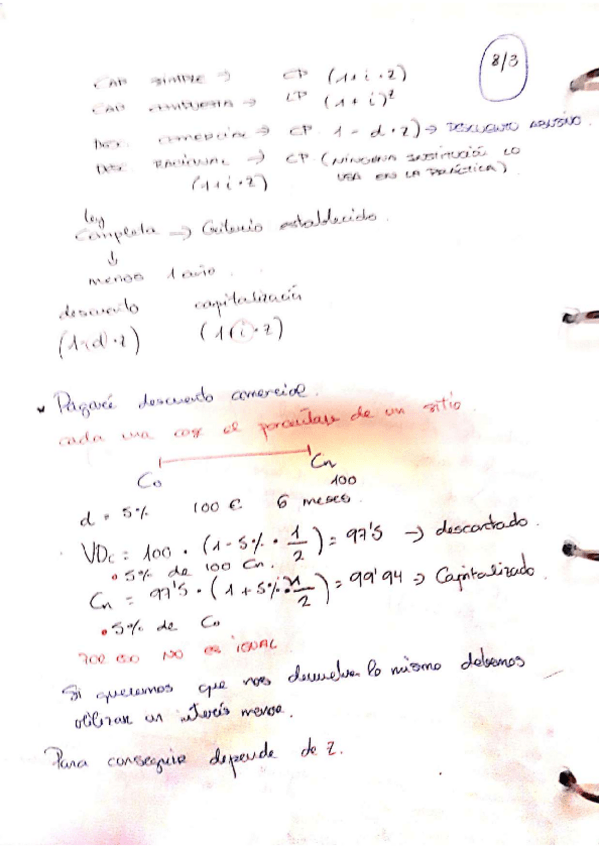 8/3
CAP SIMPLE → CP (1+i·z)
CAP COMPUESTA → LP (1+i)^z
DES. COMERCIAL → CP 1-d·z) → DESCUENTO ABUSIVO.
DES RACIONAL → CP (NINGUNA INSTITUCIÓ LO
(1+i·z) USA EN LA PRÁCTICA)
ley
Completa → Criterio establecido.
↓
menos 1 año.
descuento capitalización
(1-d·z) (1+i·z)
Pagaré descuento comercial.
cada una coge el porcentaje de un sitio
Co Cn
100
d = 5% 100 € 6 meses.
VDc = 100 · (1-5% · 1/2) = 97'5 → descontado.
• 5% de 100 Cn.
Cn = 97'5 · (1+5% · 1/2) = 99'94 → Capitalizado.
• 5% de Co
NO ES IGUAL
Si queremos que nos devuelva lo mismo debemos
utilizar un interés menor.
Para conseguir depende de z.